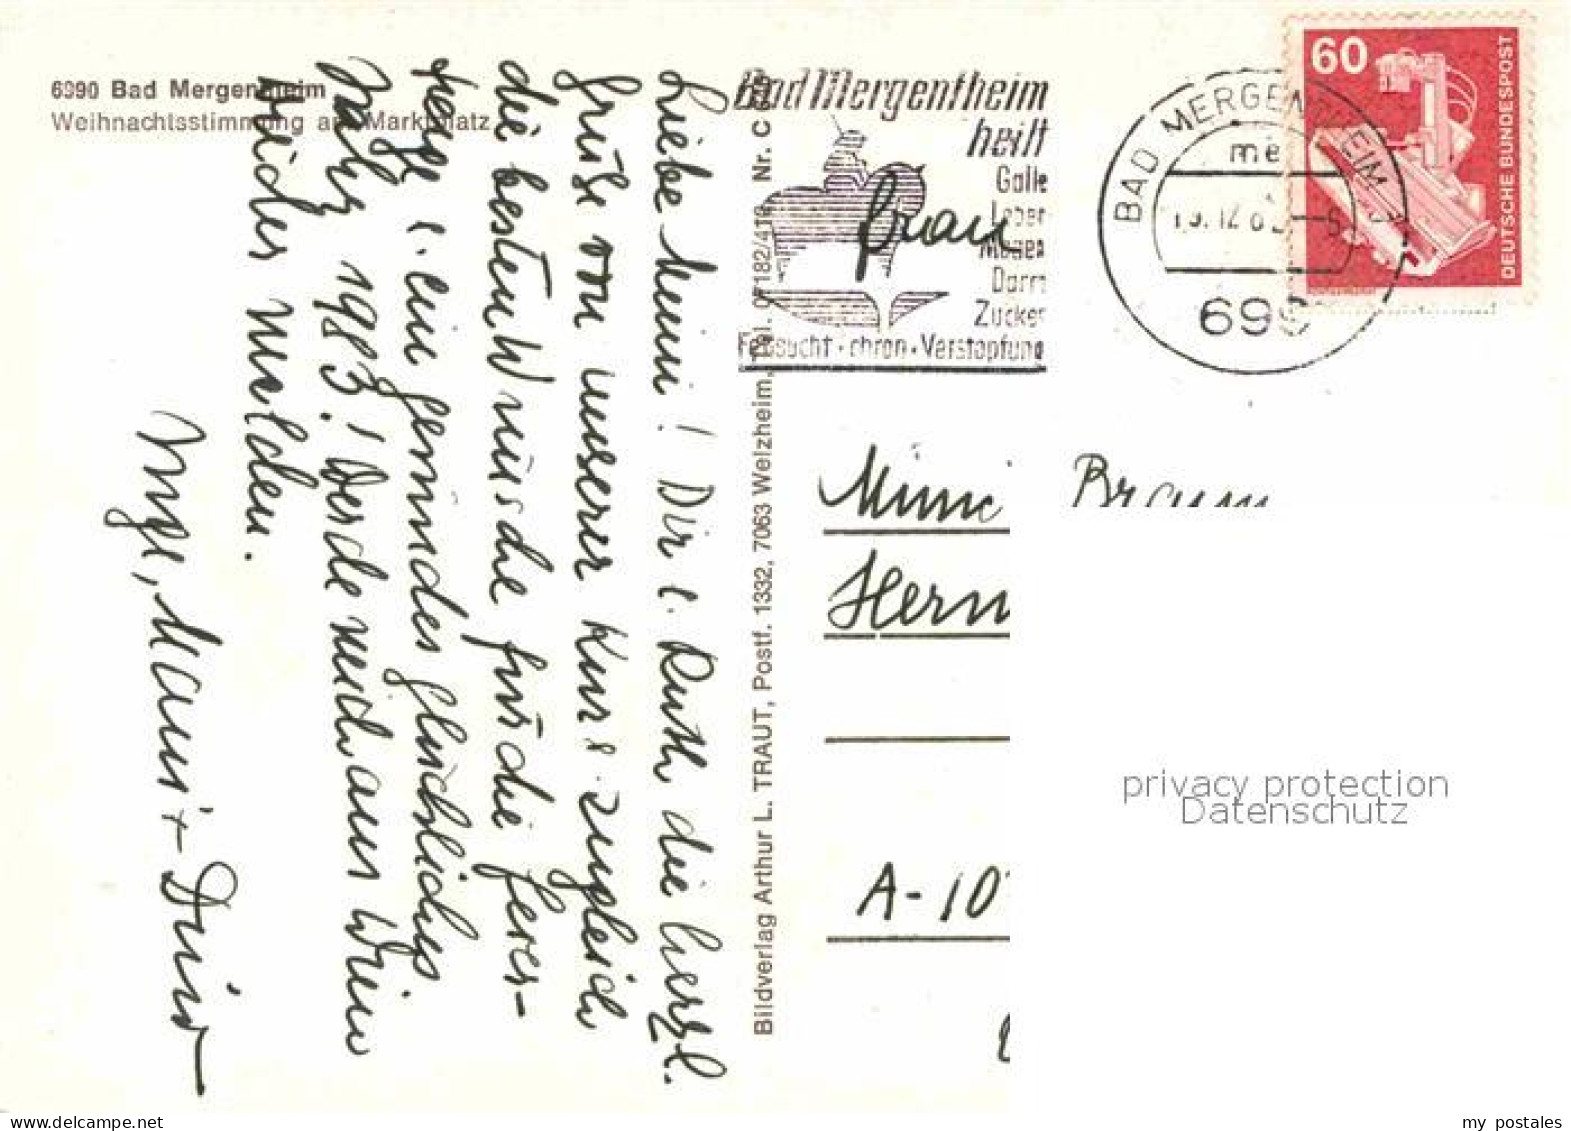 6990 Bad Mergentheim
Weihnachtsstimmung am Marktplatz
Liebe Mimi! Dir u. Ruth die herzl.
Grüße von unserer Kur u. zugleich
die besten Wünsche für die Feier-
tage u. ein gesundes glückliches
Jahr 1983! Werde mich aus Wien
wieder melden.
Inge, Mausi + Dard
Bildverlag Arthur L. TRAUT, Postf. 1332, 7063 Welzheim, Tel. 07182/41 Nr. C
Bad Mergentheim
heilt
Galle
Leber
Magen
Darm
Zucker
Fettsucht · chron. Verstopfung
Frau
BAD MERGENTHEIM 1
me
12 8
699
60
DEUTSCHE BUNDESPOST
Braun
Hern
A-10
privacy protection
Datenschutz
my postales